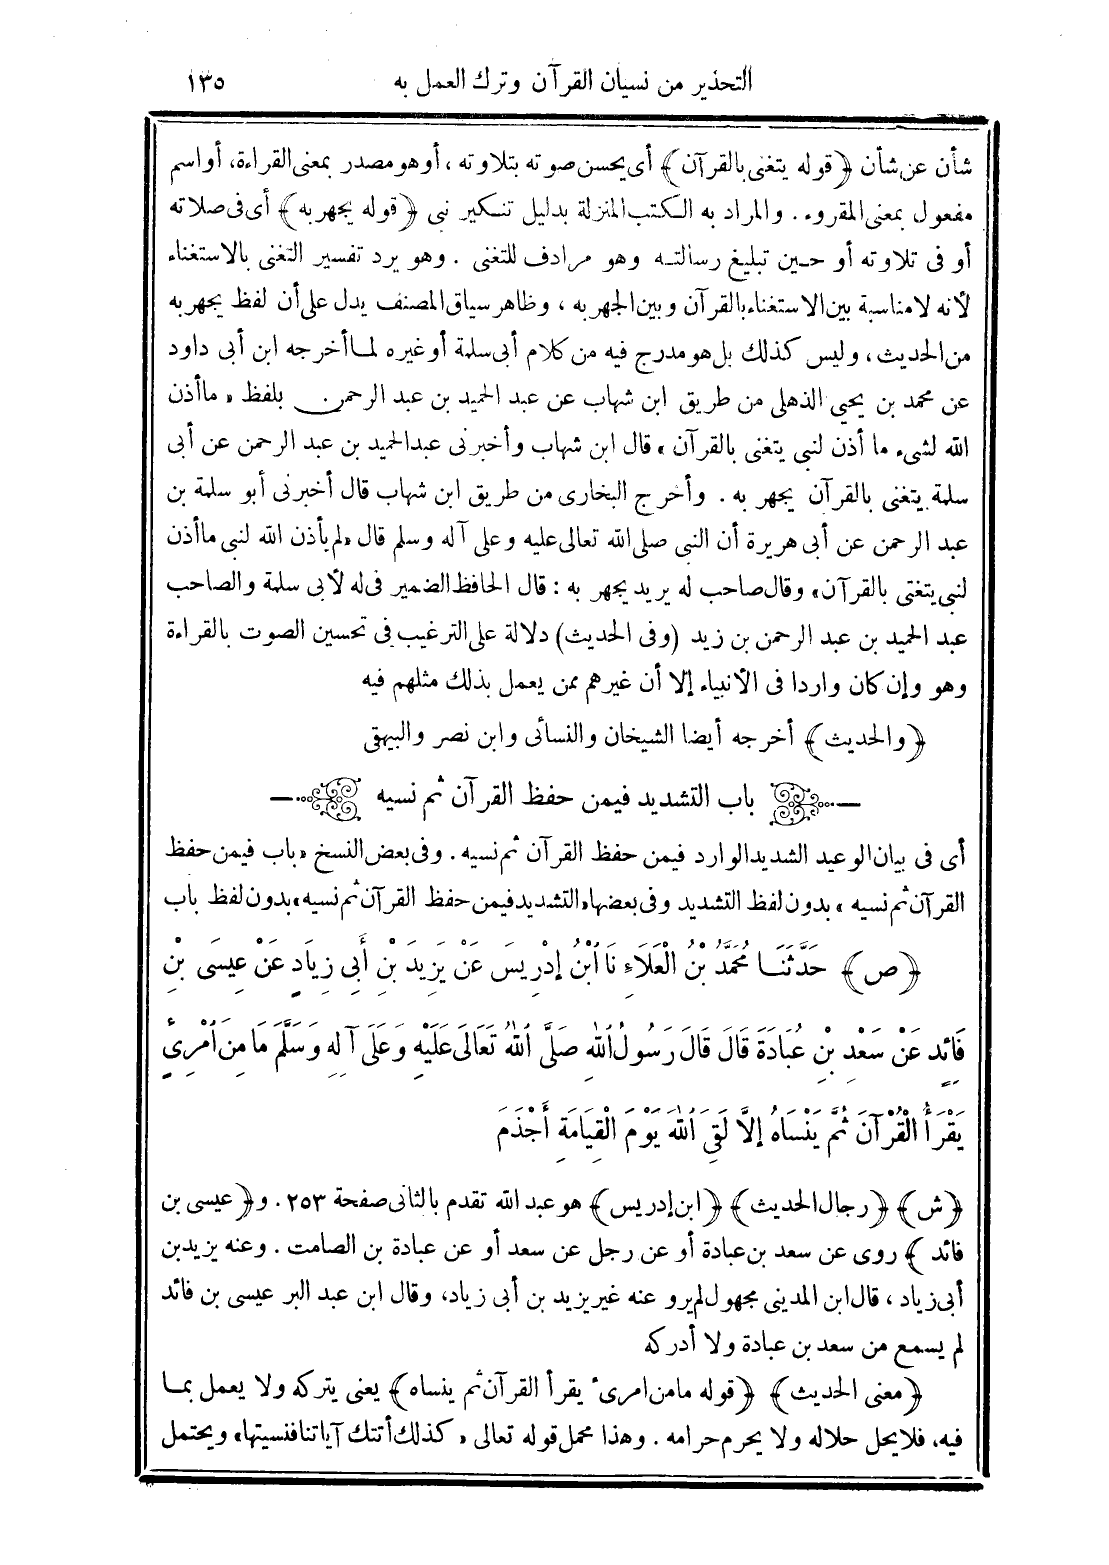 التحذير من نسيان القرآن وترك العمل به ١٣٥
شأن عن شأن ﴿قوله يتغنى بالقرآن﴾ أى يحسن صوته بتلاوته ، أو هو مصدر بمعنى القراءة، أو اسم
مفعول بمعنى المقروء. والمراد به الكتب المنزلة بدليل تنكير نبى ﴿قوله يجهر به﴾ أى فى صلاته
أو فى تلاوته أو حين تبليغ رسالته وهو مرادف للتغنى . وهو يرد تفسير التغنى بالاستغناء
لأنه لا مناسبة بين الاستغناء بالقرآن وبين الجهر به ، وظاهر سياق المصنف يدل على أن لفظ يجهر به
من الحديث ، وليس كذلك بل هو مدرج فيه من كلام أبى سلمة أو غيره لما أخرجه ابن أبى داود
عن محمد بن يحيى الذهلى من طريق ابن شهاب عن عبد الحميد بن عبد الرحمن بلفظ « ما أذن
الله لشىء ما أذن لنبى يتغنى بالقرآن » قال ابن شهاب وأخبرنى عبد الحميد بن عبد الرحمن عن أبى
سلمة يتغنى بالقرآن يجهر به . وأخرج البخارى من طريق ابن شهاب قال أخبرنى أبو سلمة بن
عبد الرحمن عن أبى هريرة أن النبى صلى الله تعالى عليه وعلى آله وسلم قال «لم يأذن الله لنبى ما أذن
لنبى يتغنى بالقرآن» وقال صاحب له يريد يجهر به : قال الحافظ الضمير فى له لأبى سلمة والصاحب
عبد الحميد بن عبد الرحمن بن زيد (وفى الحديث) دلالة على الترغيب فى تحسين الصوت بالقراءة
وهو وإن كان واردا فى الأنبياء إلا أن غيرهم ممن يعمل بذلك مثلهم فيه
﴿والحديث﴾ أخرجه أيضا الشيخان والنسائى وابن نصر والبيهقى
باب التشديد فيمن حفظ القرآن ثم نسيه
أى فى بيان الوعيد الشديد الوارد فيمن حفظ القرآن ثم نسيه . وفى بعض النسخ «باب فيمن حفظ
القرآن ثم نسيه » بدون لفظ التشديد وفى بعضها «التشديد فيمن حفظ القرآن ثم نسيه» بدون لفظ باب
﴿ص﴾ حَدَّثَنَا مُحَمَّدُ بْنُ الْعَلَاءِ نَا ابْنُ إِدْرِيسَ عَنْ يَزِيدَ بْنِ أَبِى زِيَادٍ عَنْ عِيسَى بْنِ
فَائِدٍ عَنْ سَعْدِ بْنِ عُبَادَةَ قَالَ قَالَ رَسُولُ اللهِ صَلَّى اللهُ تَعَالَى عَلَيْهِ وَعَلَى آلِهِ وَسَلَّمَ مَا مِنَ امْرِئٍ
يَقْرَأُ الْقُرْآنَ ثُمَّ يَنْسَاهُ إِلَّا لَقِىَ اللهَ يَوْمَ الْقِيَامَةِ أَجْذَمَ
﴿ش﴾ ﴿رجال الحديث﴾ ﴿ابن إدريس﴾ هو عبد الله تقدم بالثانى صفحة ٢٥٣ . و﴿عيسى بن
فائد ﴾ روى عن سعد بن عبادة أو عن رجل عن سعد أو عن عبادة بن الصامت . وعنه يزيد بن
أبى زياد ، قال ابن المدينى مجهول لم يرو عنه غير يزيد بن أبى زياد، وقال ابن عبد البر عيسى بن فائد
لم يسمع من سعد بن عبادة ولا أدركه
﴿معنى الحديث﴾ ﴿قوله ما من امرئ يقرأ القرآن ثم ينساه﴾ يعنى يتركه ولا يعمل بما
فيه، فلا يحل حلاله ولا يحرم حرامه . وهذا محمل قوله تعالى « كذلك أتتك آياتنا فنسيتها» ويحتمل